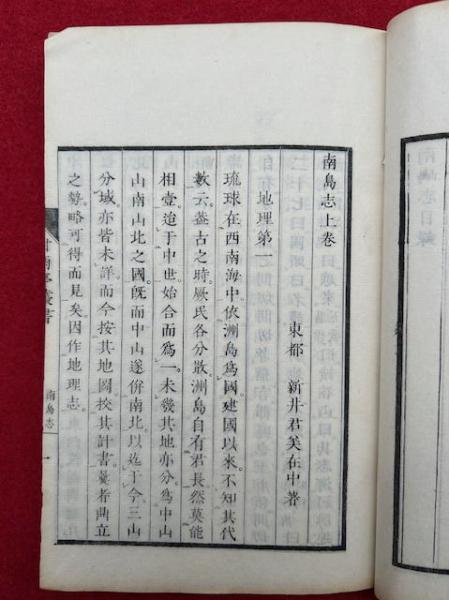 南島志上卷
東都 新井君美在中著
地理第一
琉球在西南海中依洲島爲國建國以來不知其代
數云葢古之時厥民各分散洲島自有君長然莫能
相壹迨于中世始合而爲一未幾其地亦分爲中山
山南山北之國旣而中山遂併南北以迄于今三山
分域亦皆未詳而今按其地圖挍其計書彙者曲立
之勢略可得而見矣因作地理志
甘雨亭叢書
南島志
一
南島志目錄